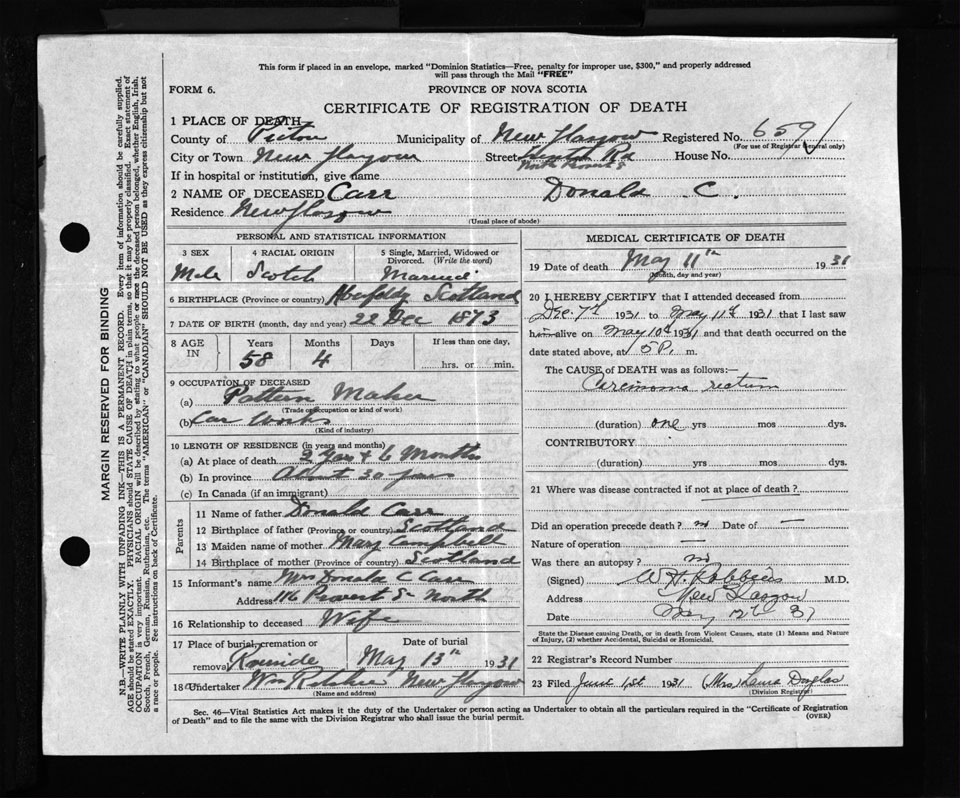 This form if placed in an envelope, marked "Dominion Statistics—Free, penalty for improper use, $300," and properly addressed
will pass through the Mail "FREE"
FORM 6.
PROVINCE OF NOVA SCOTIA
CERTIFICATE OF REGISTRATION OF DEATH
1 PLACE OF DEATH—
County of Pictou Municipality of New Glasgow Registered No. 659
(For use of Registrar General only)
City or Town New Glasgow Street Rd House No.
North Provost S
If in hospital or institution, give name
2 NAME OF DECEASED Carr Donald C.
Residence New Glasgow
(Usual place of abode)
PERSONAL AND STATISTICAL INFORMATION
3 SEX 4 RACIAL ORIGIN 5 Single, Married, Widowed or Divorced. (Write the word)
Male Scotch Married
6 BIRTHPLACE (Province or country) Scotland
7 DATE OF BIRTH (month, day and year) 22 Dec 1873
8 AGE IN Years Months Days If less than one day,
58 4 hrs. or min.
9 OCCUPATION OF DECEASED
(a) Pattern Maker
(Trade or occupation or kind of work)
(b) Car Works
(Kind of industry)
10 LENGTH OF RESIDENCE (in years and months)
(a) At place of death 2 Years & 6 Months
(b) In province About 30 years
(c) In Canada (if an immigrant)
Parents
11 Name of father Donald Carr
12 Birthplace of father (Province or country) Scotland
13 Maiden name of mother Mary Campbell
14 Birthplace of mother (Province or country) Scotland
15 Informant's name Mrs Donald C Carr
Address 116 Provost S— North
16 Relationship to deceased Wife
17 Place of burial, cremation or removal Date of burial
May 13th 1931
18 Undertaker Wm Ritchie New Glasgow
(Name and address)
MEDICAL CERTIFICATE OF DEATH
19 Date of death May 11th 1931
(Month, day and year)
20 I HEREBY CERTIFY that I attended deceased from
Dec. 7th 1931 to May 11th 1931 that I last saw
him alive on May 10th 1931 and that death occurred on
date stated above, at 5 P. m.
The CAUSE of DEATH was as follows:—
Carcinoma rectum
(duration) one yrs mos dys.
CONTRIBUTORY
(duration) yrs mos dys.
21 Where was disease contracted if not at place of death?
Did an operation precede death? no Date of —
Nature of operation —
Was there an autopsy? no
(Signed) W H Robbins M.D.
Address New Glasgow
Date May 12th 31
State the Disease causing Death, or in death from Violent Causes, state (1) Means and Nature
of Injury, (2) whether Accidental, Suicidal or Homicidal.
22 Registrar's Record Number
23 Filed June 1st 1931 (Mrs) Laura Douglas
(Division Registrar)
Sec. 46—Vital Statistics Act makes it the duty of the Undertaker or person acting as Undertaker to obtain all the particulars required in the "Certificate of Registration
of Death" and to file the same with the Division Registrar who shall issue the burial permit.
(OVER)
MARGIN RESERVED FOR BINDING
N.B.—WRITE PLAINLY WITH UNFADING INK—THIS IS A PERMANENT RECORD. Every item of information should be carefully supplied.
AGE should be stated EXACTLY. PHYSICIANS should STATE CAUSE OF DEATH in plain terms, so that it may be properly classified. Exact statement of
OCCUPATION is very important. RACIAL ORIGIN will be described by stating to what people or race the deceased person belonged, whether English, Irish,
Scotch, French, German, Russian, Ruthenian, etc. The terms "AMERICAN" or "CANADIAN" SHOULD NOT BE USED as they express citizenship but not
a race or people. See instructions on back of Certificate.